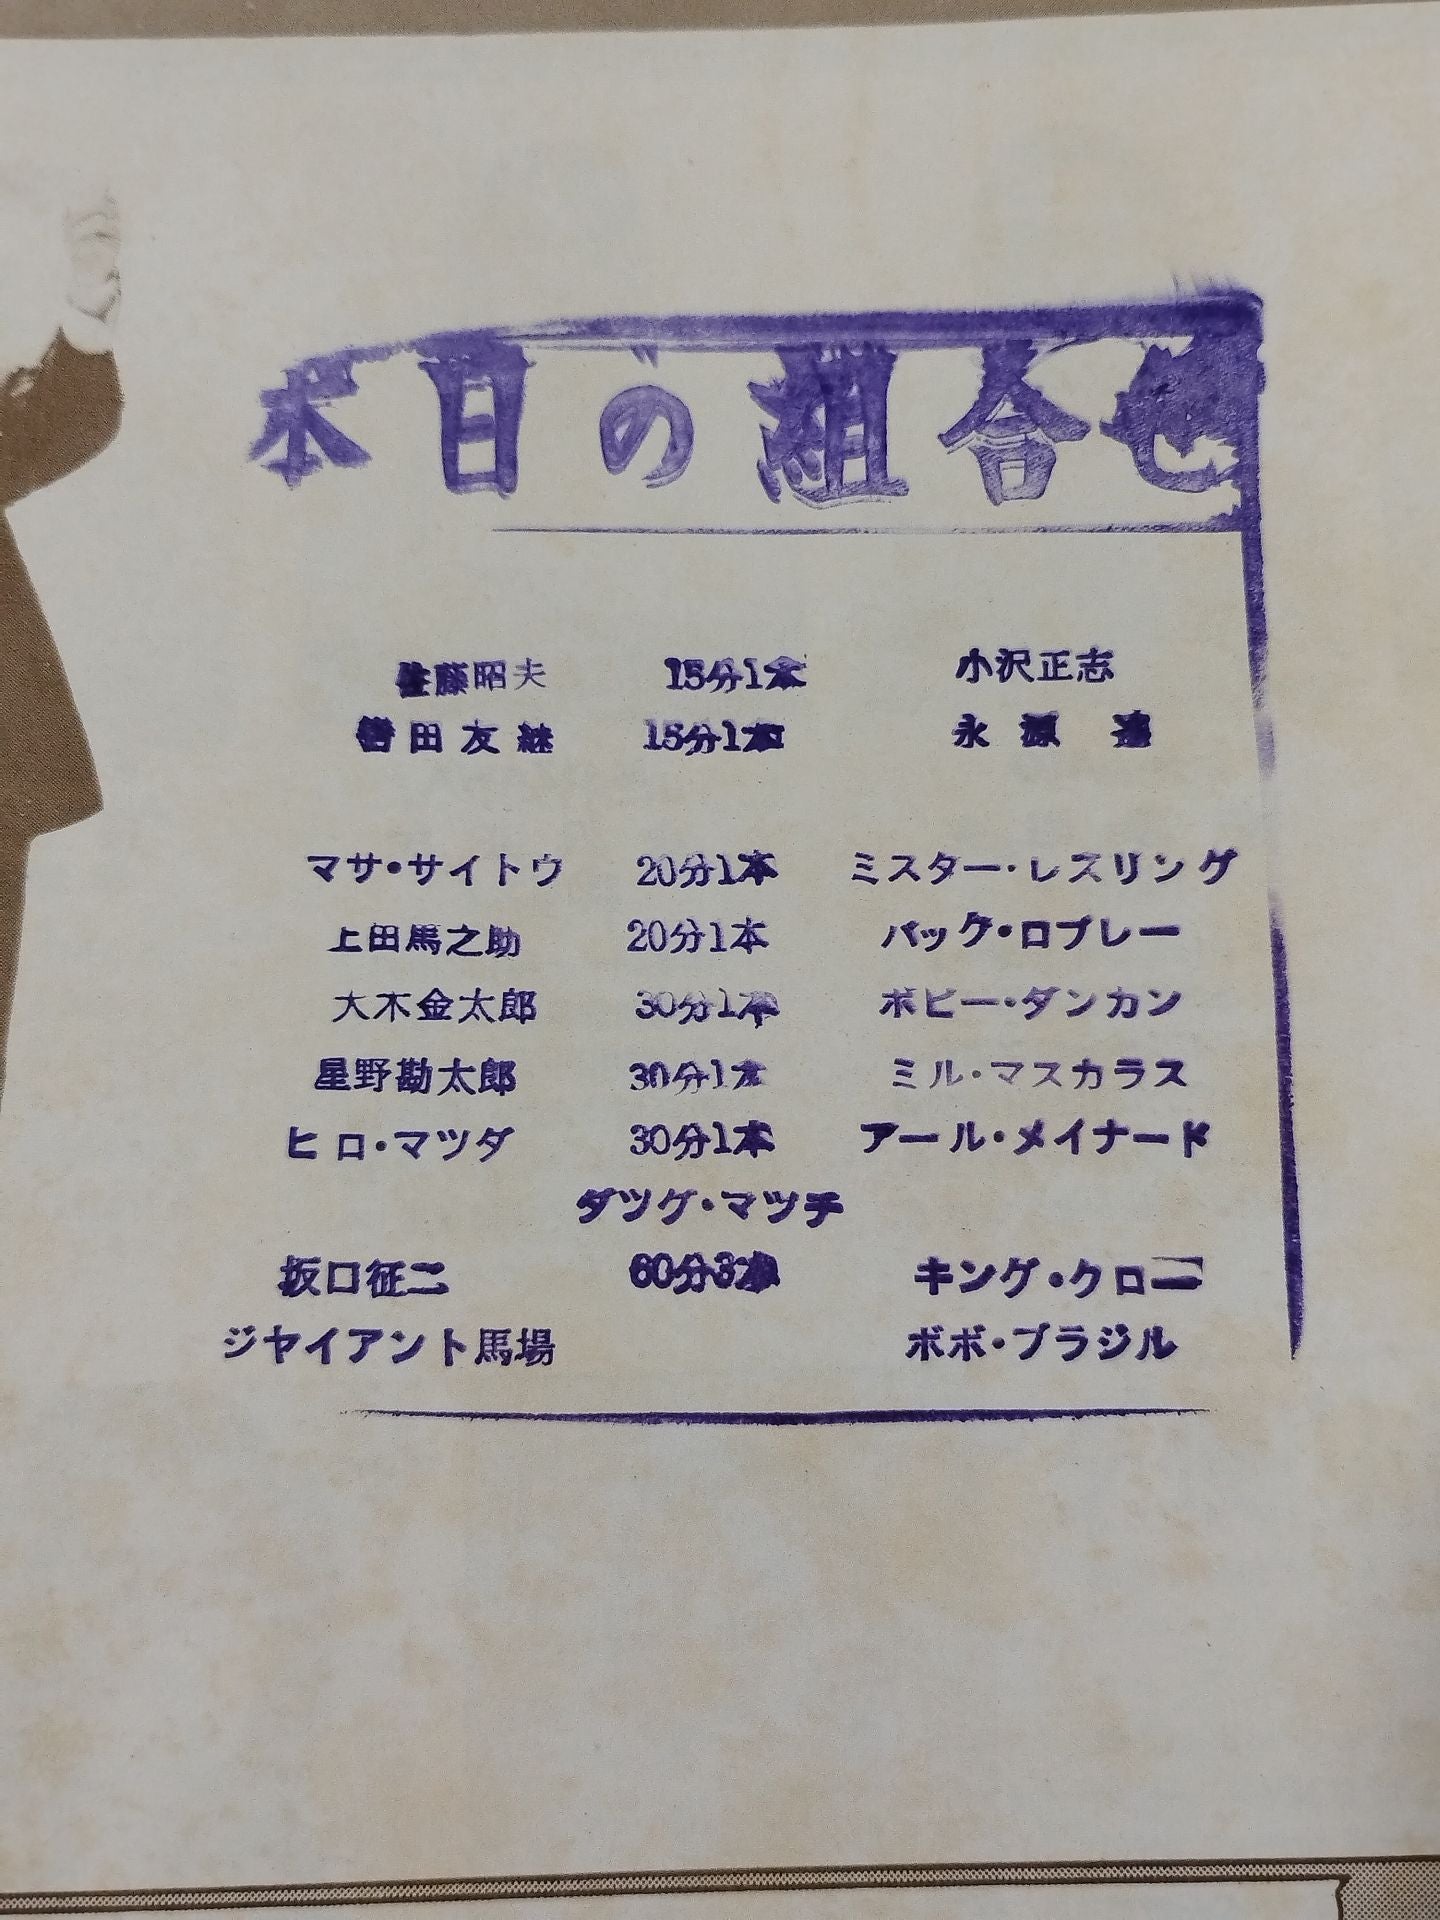 本日の組合せ
佐藤昭夫 15分1本 小沢正志
轡田友継 15分1本 永源遙
マサ・サイトウ 20分1本 ミスター・レスリング
上田馬之助 20分1本 バック・ロブレー
大木金太郎 30分1本 ボビー・ダンカン
星野勘太郎 30分1本 ミル・マスカラス
ヒロ・マツダ 30分1本 アール・メイナード
タツグ・マツチ
坂口征二 60分3本 キング・クロー
ジヤイアント馬場 ボボ・ブラジル